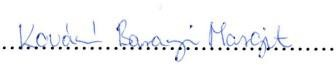 Kovácsné Baranyi Margit